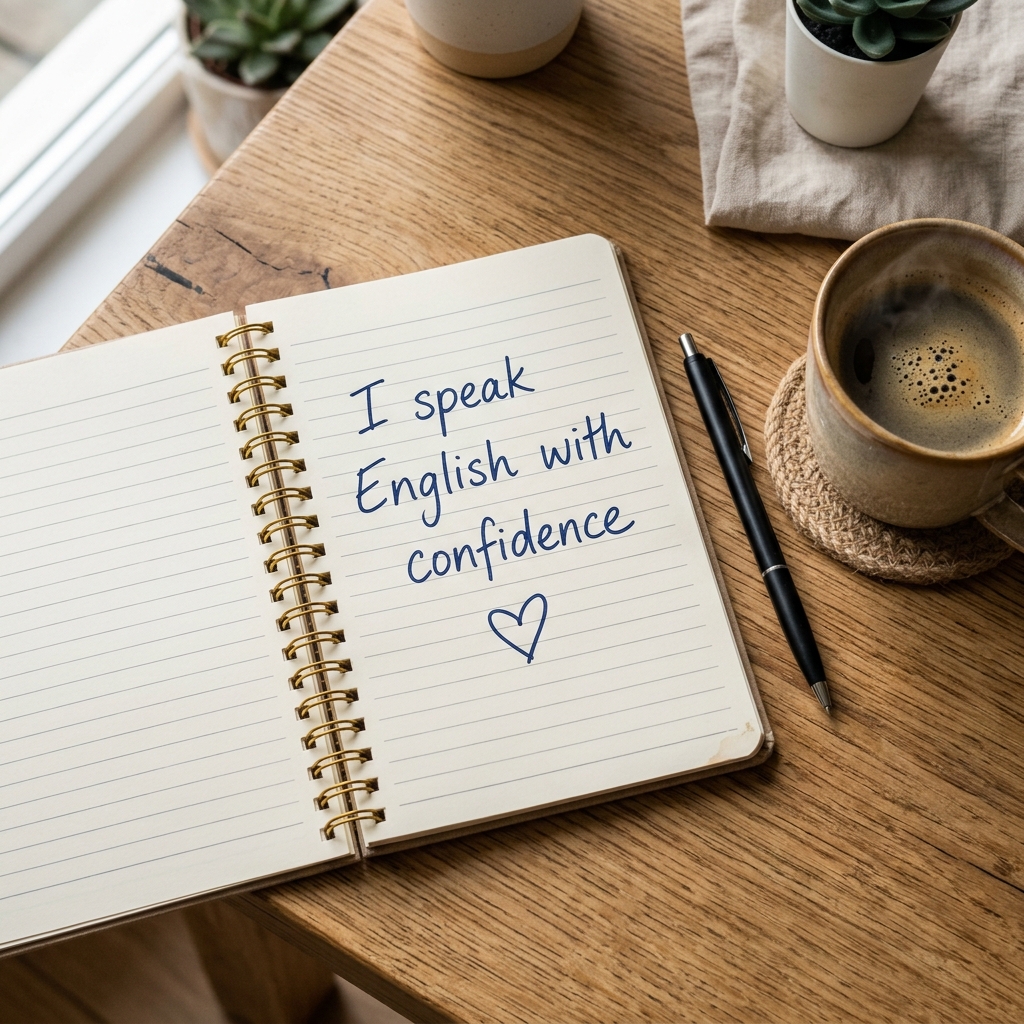 I speak
English with
confidence